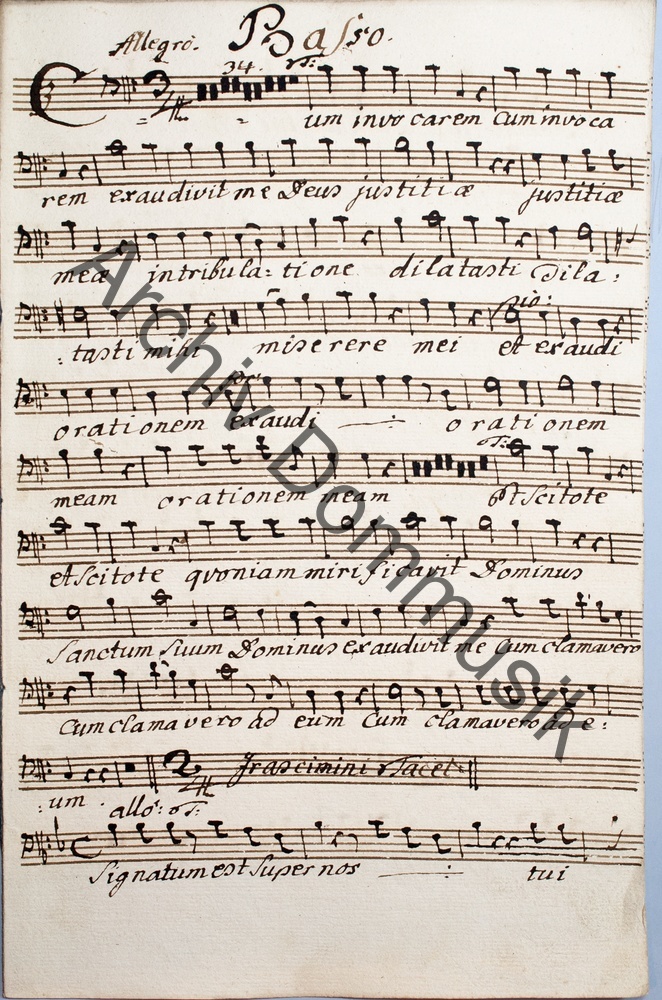 Allegro. Basso.
34. T:
Cum invocarem Cum invoca
rem exaudivit me Deus justitiæ justitiæ
meæ in tribula: tione dilatasti Dila:
pio:
: tasti mihi miserere mei et exaudi
for:
orationem exaudi orationem
T:
meam orationem meam Et Scitote
et Scitote qvoniam mirificavit Dominus
Sanctum Suum Dominus exaudivit me Cum clamavero
Cum clamavero ad eum Cum clamavero ad e:
2 Jrascimini Tacet
: um. allo: T:
Signatum est Super nos tui
Archiv Dommusik